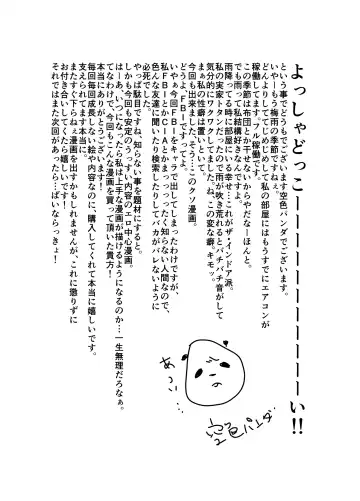 よっしゃどっこーーーーーーーーーい!!
という事でどうもでございます空色パンダでございます。
いやーもう梅雨の季節ですねぇ。
どんよりしててじめじめして私の部屋にはもうすでにエアコンが
稼働してます。フル稼働です。
この季節は布団とか干せないからやだなーほんと。
でも雨って私結構好きなんですよ。
雨降ってる時に部屋にいる幸せ…これがザ・インドア派。
私の実家トタンだったので雨が吹き荒れるとバチバチ音がして
気分的にワクワクしてました。ね、この変な癖。キモッ。
まぁ私の性癖は置いといて。
今回も出来ました。そう…このクソ漫画。
どうよ、FBIですってよ。
いやぁ今回FBIをキャラで出してしまったわけですが、
私FBIとかCIAとかまーったく知らない人間なので、
色んな友達に聞いたり検索したりしてバカがバレないように
必死でした。
やっぱ駄目ですね、知らない事を題材にすると。
しかも今回も安定のうっすい内容のエロ中心漫画。
はーあ、いつになったら私は上手な漫画が描けるようになるのか…一生無理だろなぁ。
てなわけで、今回もこんな漫画を買って頂いた貴方!
本当にありがとうございます!
毎回毎回成長しない絵や内容なのに、購入してくれて本当に嬉しいです。
支えられてます本当に。
またすぐ下らねぇ漫画を出すかもしれませんが、これに懲りずに
お付き合いしてくたら嬉しいです!
それではまた次回があったら…ばいならっきょ!
あつい…
空色パンダ